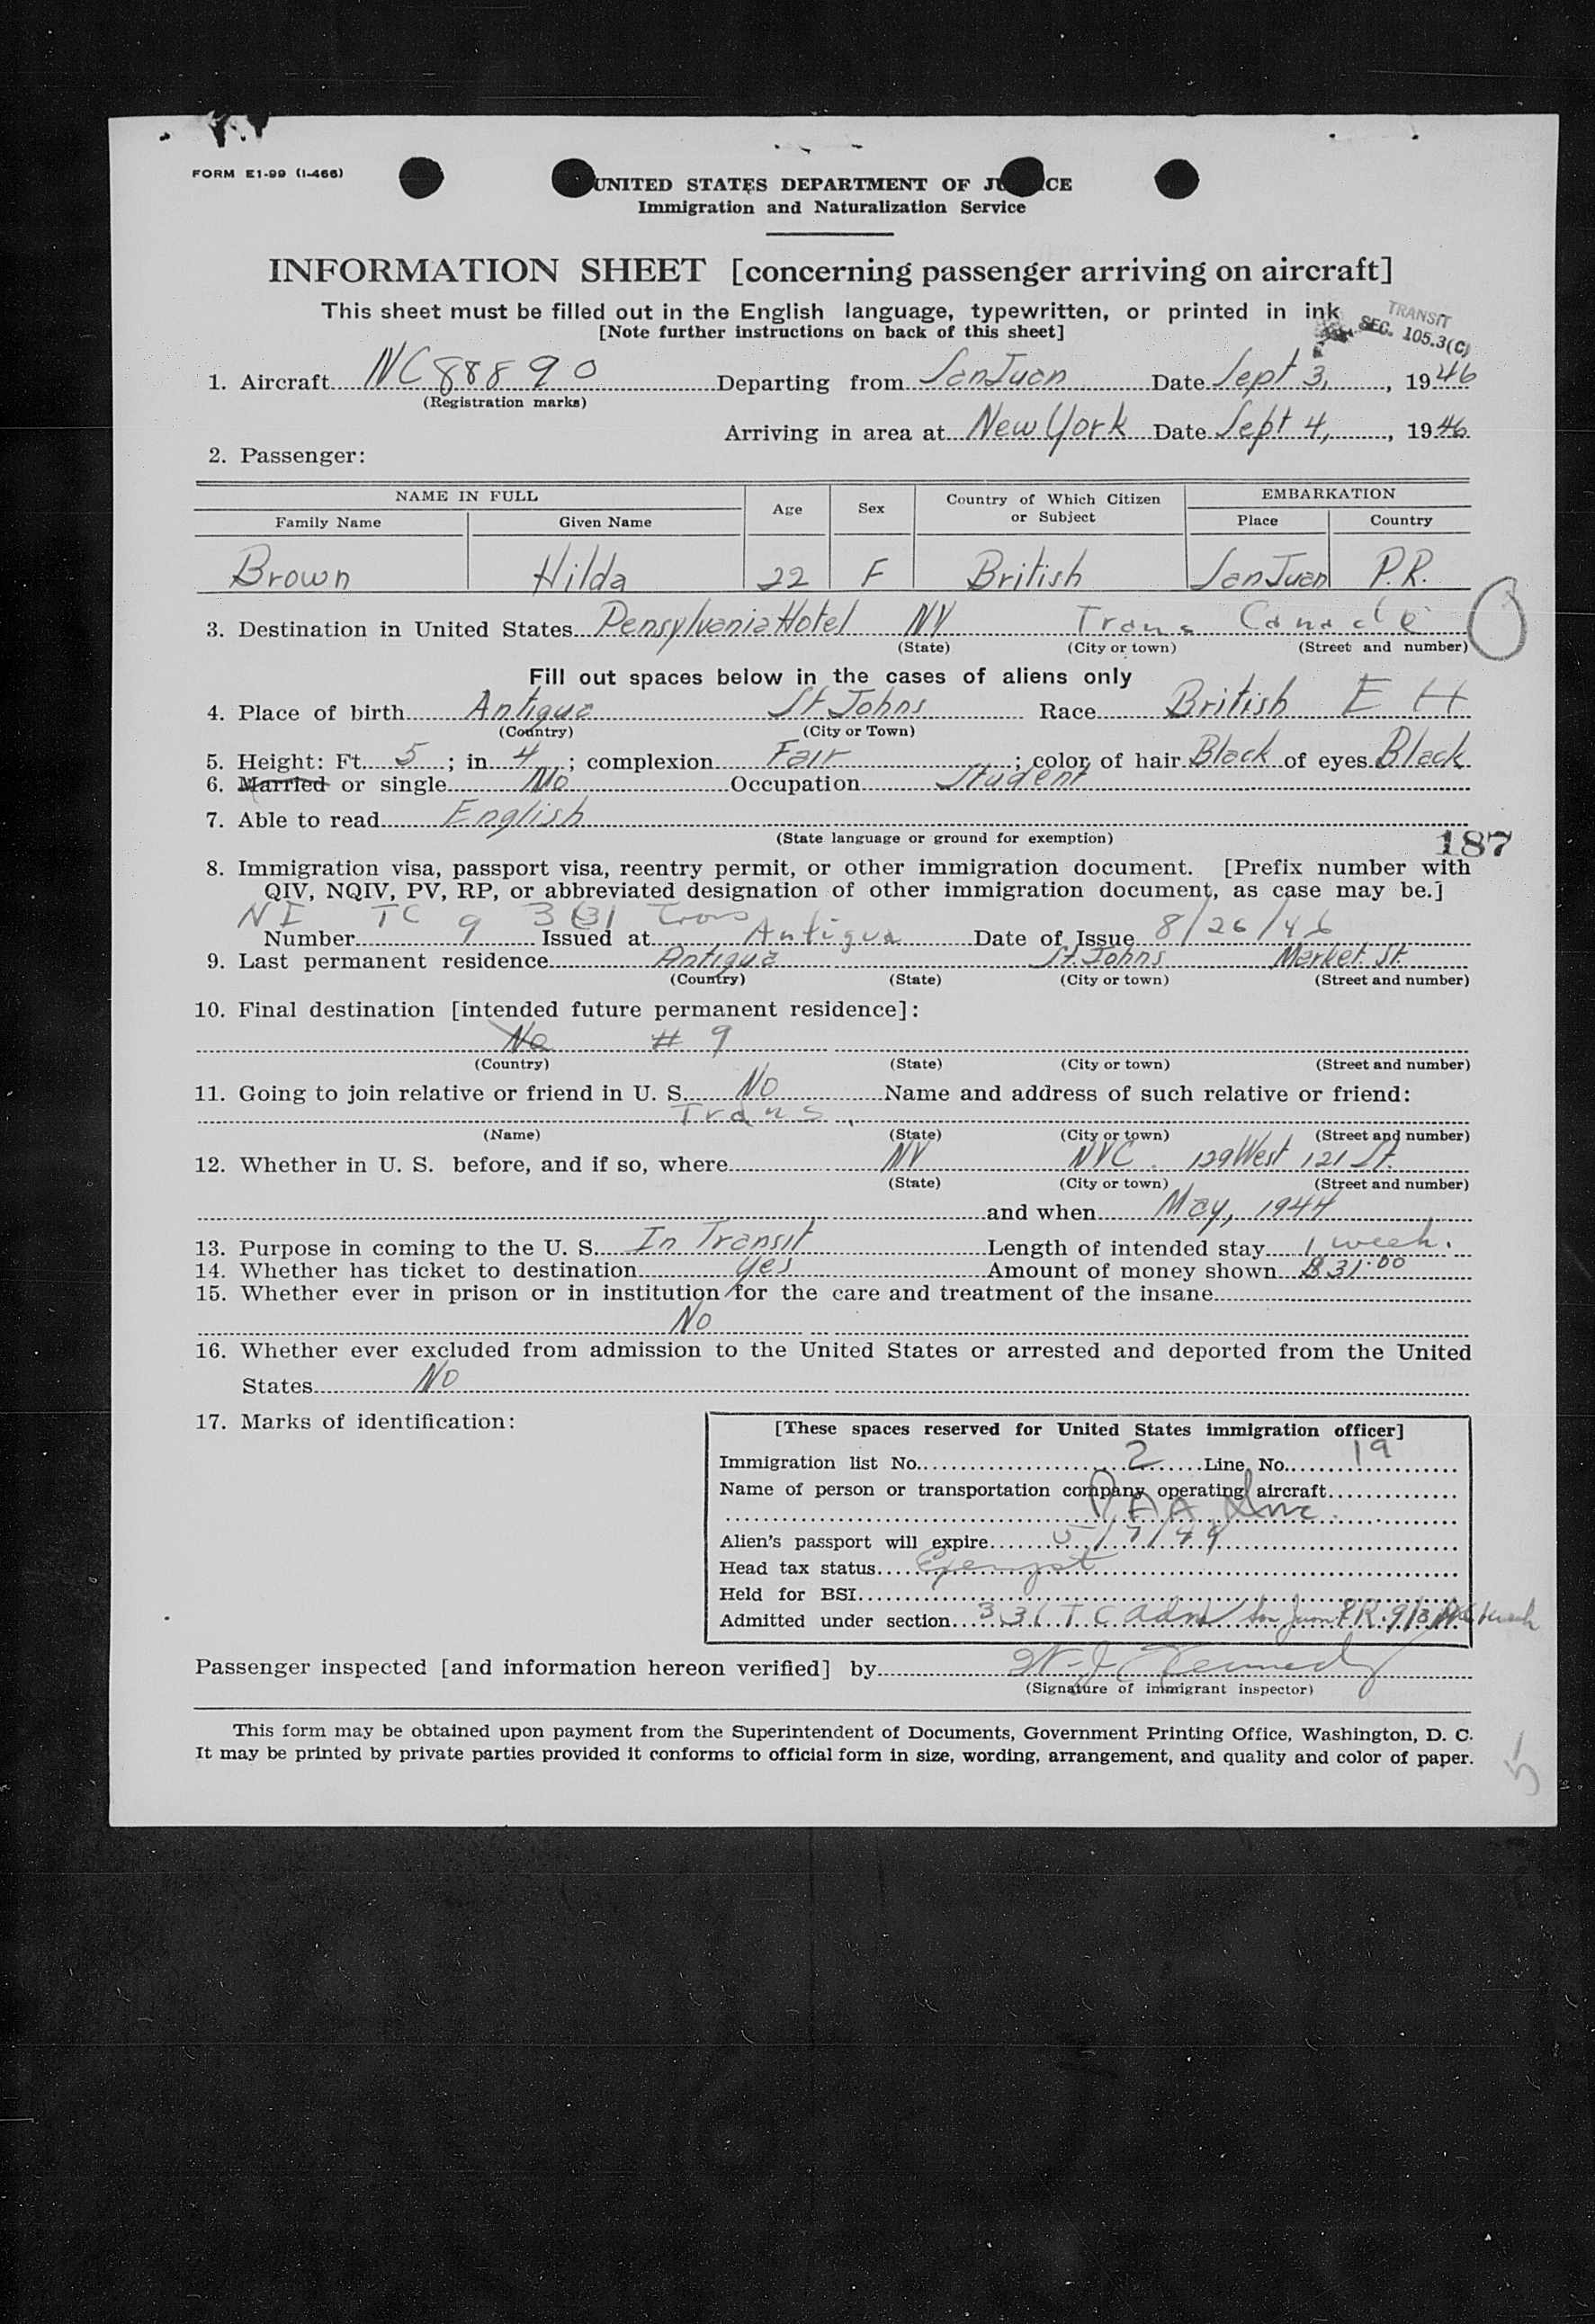 FORM E1-99 (1-466)
UNITED STATES DEPARTMENT OF JU CE
Immigration and Naturalization Service
INFORMATION SHEET [concerning passenger arriving on aircraft]
This sheet must be filled out in the English language, typewritten, or printed in ink
[Note further instructions on back of this sheet]
TRANSIT
SEC. 105.3(C)
1. Aircraft NC88890 Departing from San Juan Date Sept 3, 1946
(Registration marks)
Arriving in area at New York Date Sept 4, 1946
2. Passenger:
NAME IN FULL Age Sex Country of Which Citizen or Subject EMBARKATION
Family Name Given Name Place Country
Brown Hilda 22 F British San Juan P.R.
3. Destination in United States Pensylvania Hotel NY Trans Canada
(State) (City or town) (Street and number)
Fill out spaces below in the cases of aliens only
4. Place of birth Antigua St Johns Race British E H
(Country) (City or Town)
5. Height: Ft. 5; in 4; complexion Fair; color of hair Black of eyes Black
6. Married or single No Occupation Student
7. Able to read English
(State language or ground for exemption)
187
8. Immigration visa, passport visa, reentry permit, or other immigration document. [Prefix number with
QIV, NQIV, PV, RP, or abbreviated designation of other immigration document, as case may be.]
NI TC 3(3) Trans
Number 9 Issued at Antigua Date of Issue 8/26/46
9. Last permanent residence Antigua St. Johns Market St.
(Country) (State) (City or town) (Street and number)
10. Final destination [intended future permanent residence]:
No # 9
(Country) (State) (City or town) (Street and number)
11. Going to join relative or friend in U. S. No Name and address of such relative or friend:
Trans
(Name) (State) (City or town) (Street and number)
12. Whether in U. S. before, and if so, where NY NYC. 129 West 121 St.
(State) (City or town) (Street and number)
and when May, 1944
13. Purpose in coming to the U. S. In Transit Length of intended stay 1 week.
14. Whether has ticket to destination Yes Amount of money shown $31.00
15. Whether ever in prison or in institution for the care and treatment of the insane
No
16. Whether ever excluded from admission to the United States or arrested and deported from the United
States No
17. Marks of identification:
[These spaces reserved for United States immigration officer]
Immigration list No. 2 Line No. 19
Name of person or transportation company operating aircraft
PAA Inc.
Alien's passport will expire 5/7/49
Head tax status Exempt
Held for BSI
Admitted under section 3.3(TC adm San Juan P.R. 9/3/46 1 week
Passenger inspected [and information hereon verified] by W. J. Kennedy
(Signature of immigrant inspector)
This form may be obtained upon payment from the Superintendent of Documents, Government Printing Office, Washington, D. C.
It may be printed by private parties provided it conforms to official form in size, wording, arrangement, and quality and color of paper.
5